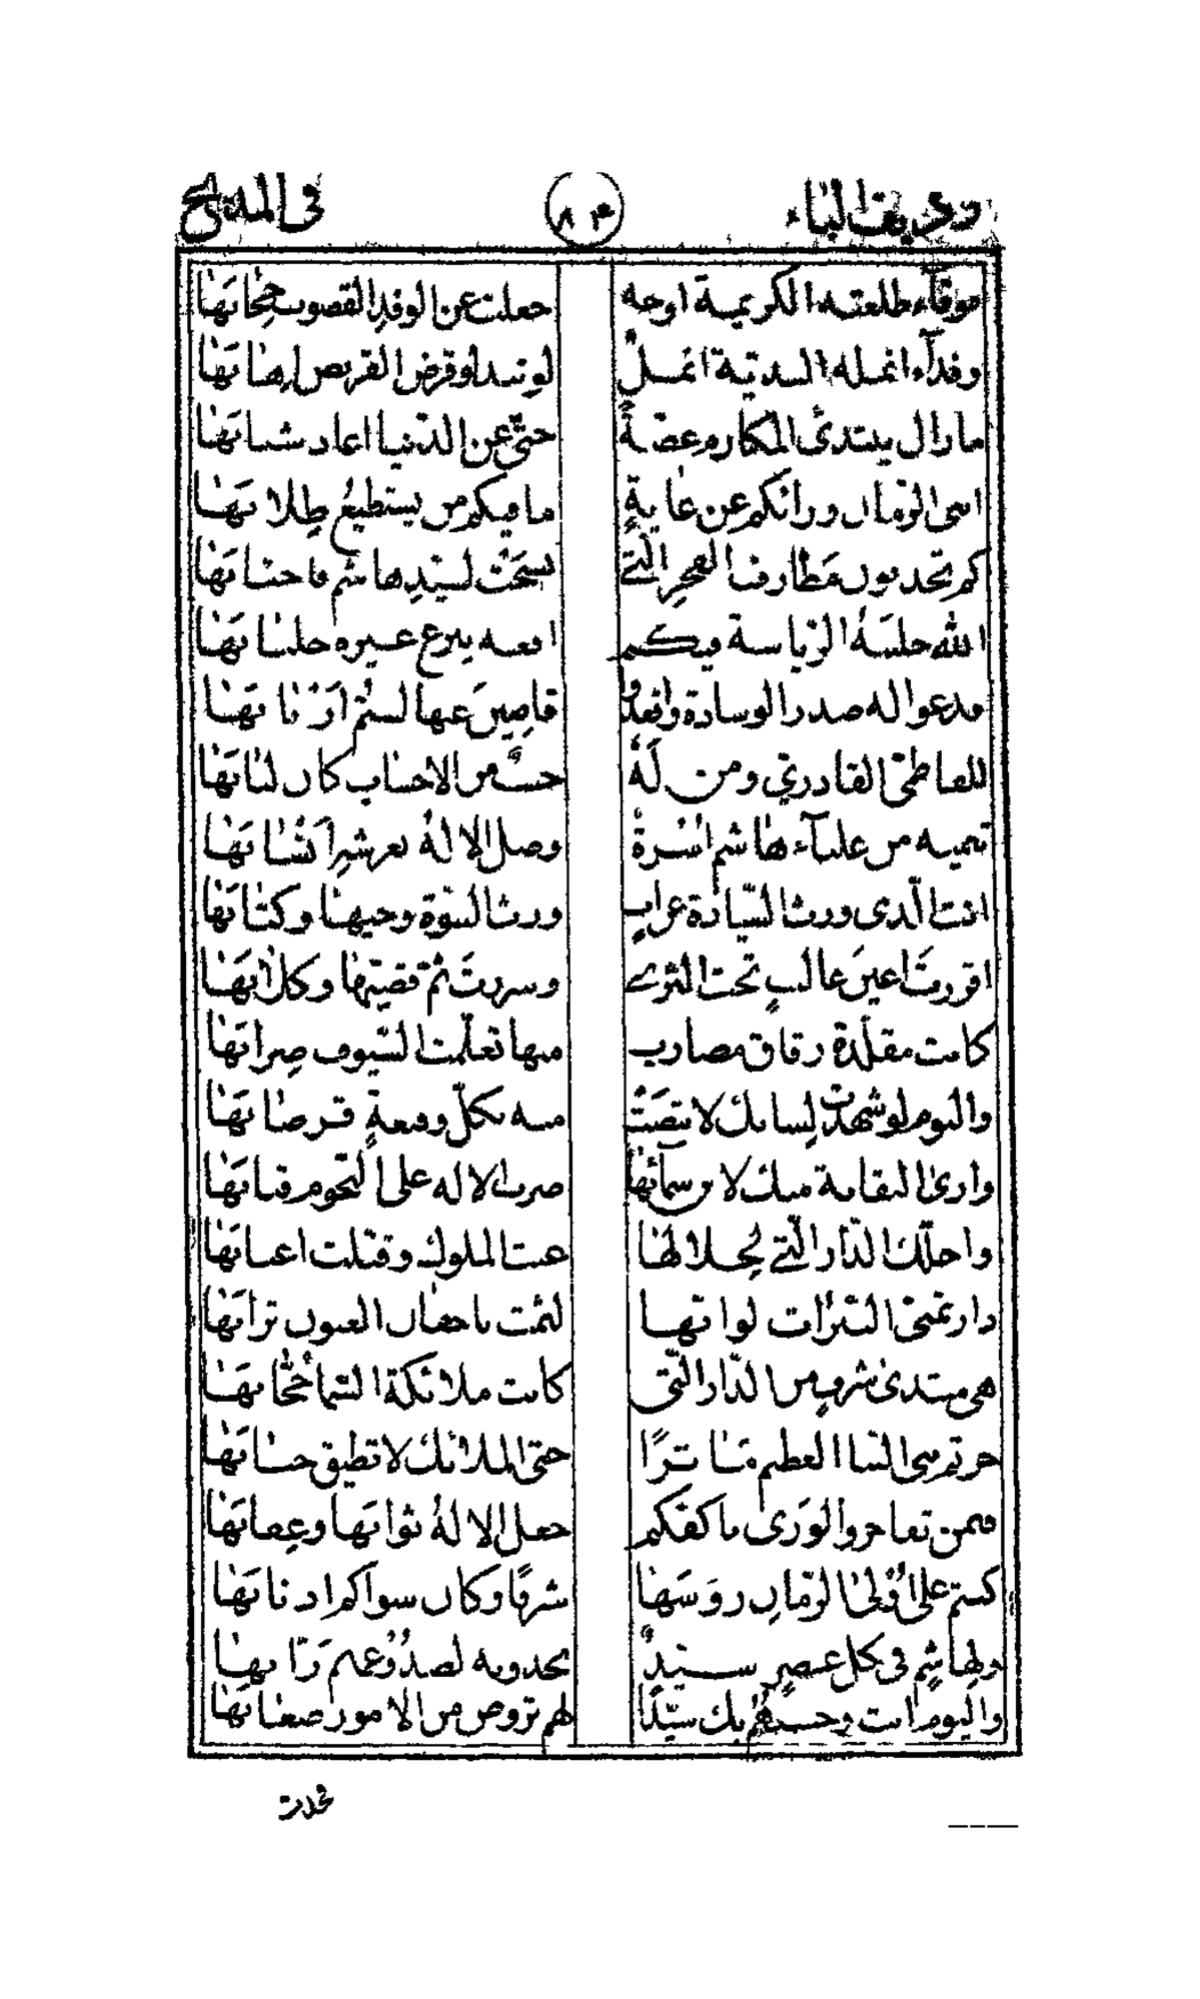 رديف الباء ٨٣ في المديح
فوقاء طلعته الكريمة اوجه جعلت عن الوفد القصور حجابها
وفداء انمله السدية انمل لو تبد او قرض القريض اهابها
ما زال يبتدئ المكارم غضة حتى عن الدنيا اعاد شبابها
ابني الزمان وراءكم عن غاية ما فيكم من يستطيع طلابها
كم تجذبون مطارف الفخر التي نسجت لسيد هاشم فاحتابها
الله جلببه الرياسة فيكم افعنه ينزع غيره جلبابها
فدعوا له صدر الوسادة واقعدوا قاصين عنها لستم اربابها
للفاطمي القادري ومن له حسب من الاحساب كان لبابها
تنميه من علياء هاشم اسرة وصل الاله بعرشه انسابها
انت الذي ورث السيادة عن اب ورث النبوة وحيها وكتابها
اقررت اعين غالب تحت الثرى وسررت ثم قصيها وكلابها
كانت مقلدة رقاق مضارب منها تعلمت السيوف ضرابها
واليوم لو شهدت لسانك لانتضت منه بكل وقعة قرضابها
وارى النقابة منك لابن سمائها ضرب الاله على النجوم قبابها
واحلك الدار التي لجلالها عنت الملوك وقبلت اعتابها
دار تمنى النيرات لو انها لثمت باجفان العيون ترابها
هي مبتدى شرف من الدار التي كانت ملائكة السما حجابها
حزتم بني النبأ العظيم مآثرا حتى الملائك لا تطيق حسابها
فبمن تفاخر والورى باكفكم جعل الاله ثوابها وعقابها
كنتم على اولى الزمان رؤسها شرفا وكان سواكم اذنابها
ولهاشم في كل عصر سيد يجدونه لصدوعهم رآبها
واليوم انت وحسبهم بك سيدا لهم تروض من الامور صعابها